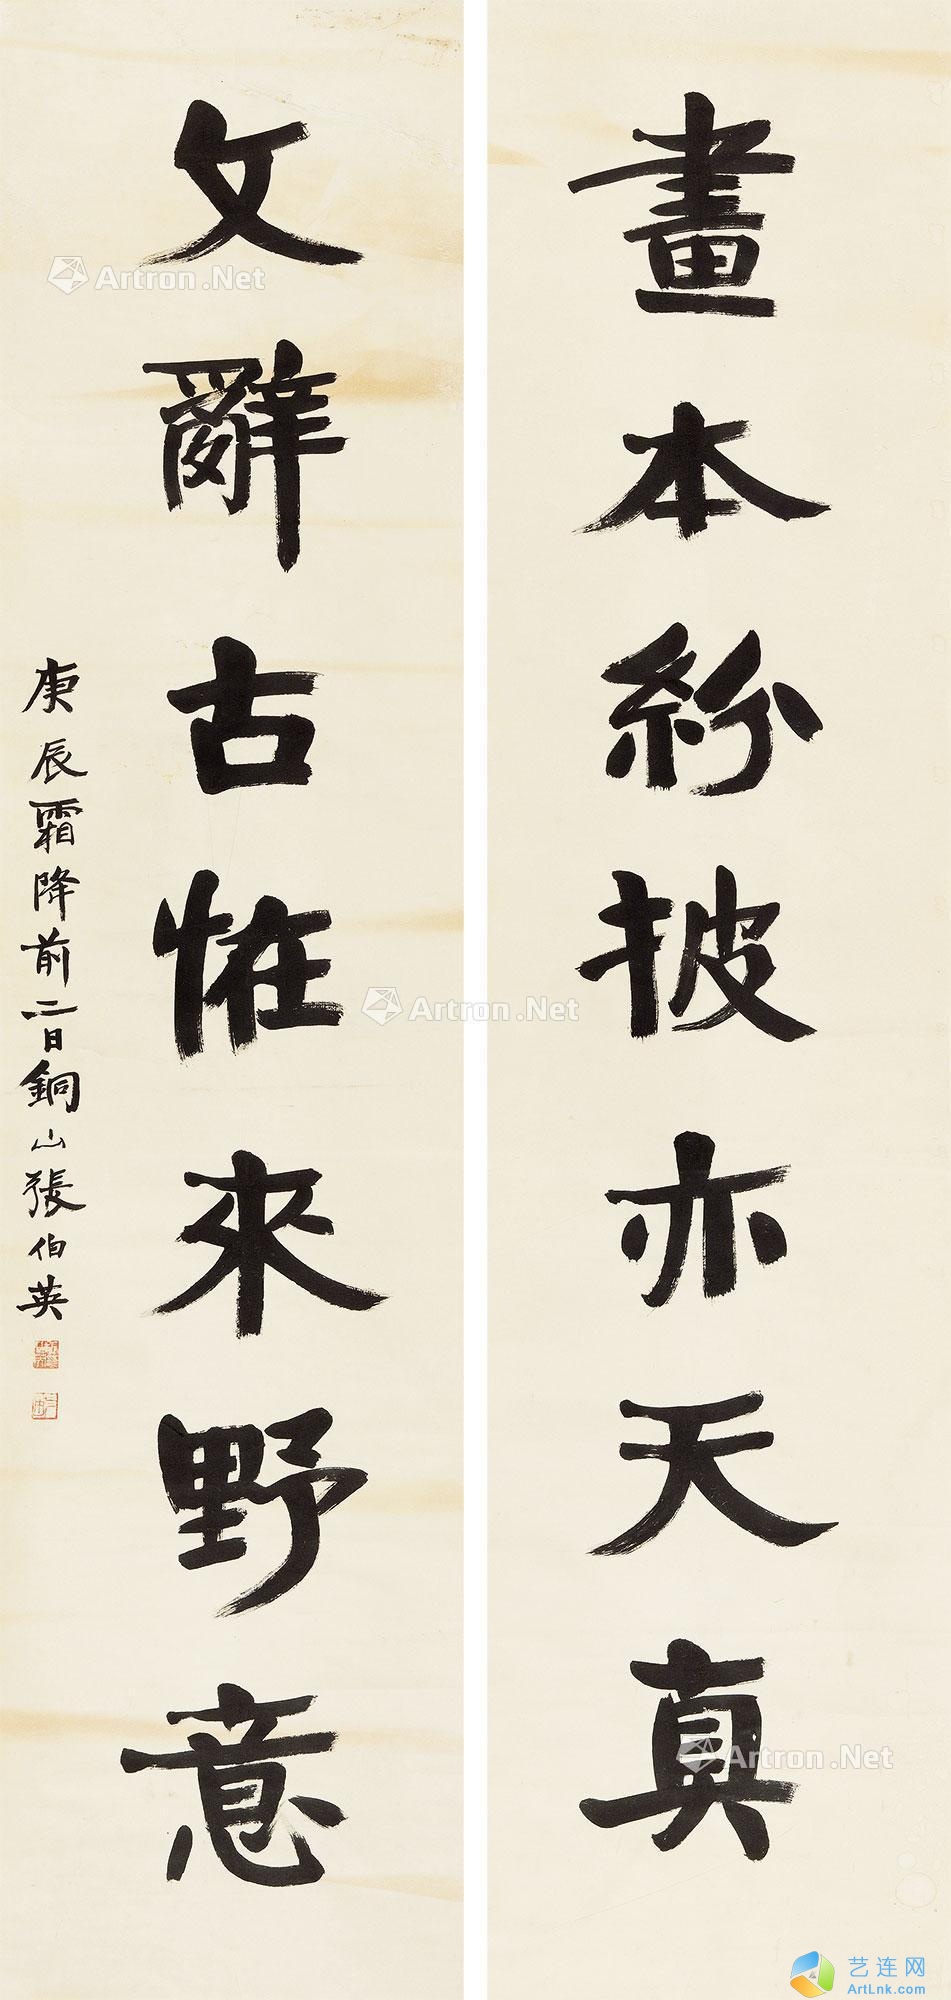 畫本紛披亦天真
文辭古恠來野意
庚辰霜降前二日銅山張伯英
Artron.Net
Artron.Net
Artron.Net
艺连网
ArtLnk.com